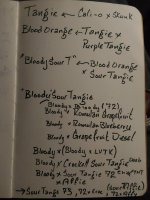 Tangie ← Cali-o x Skunk
Blood Orange ← Tangie x
Purple Tangie
"Bloody Sour T" ← Blood Orange
x Sour Tangie
"Bloody Sour Tangie
Bloody x Bloody ('72)
Bloody x Romulan Grapefruit
Bloody x Romulan Blueberry
Bloody x Grapefruit Diesel
Bloody x (Bloody x LVTK)
Bloody x Crockett Sour Tangie
Bloody x Sour Tangie
x Affie
→ Sour Tangie